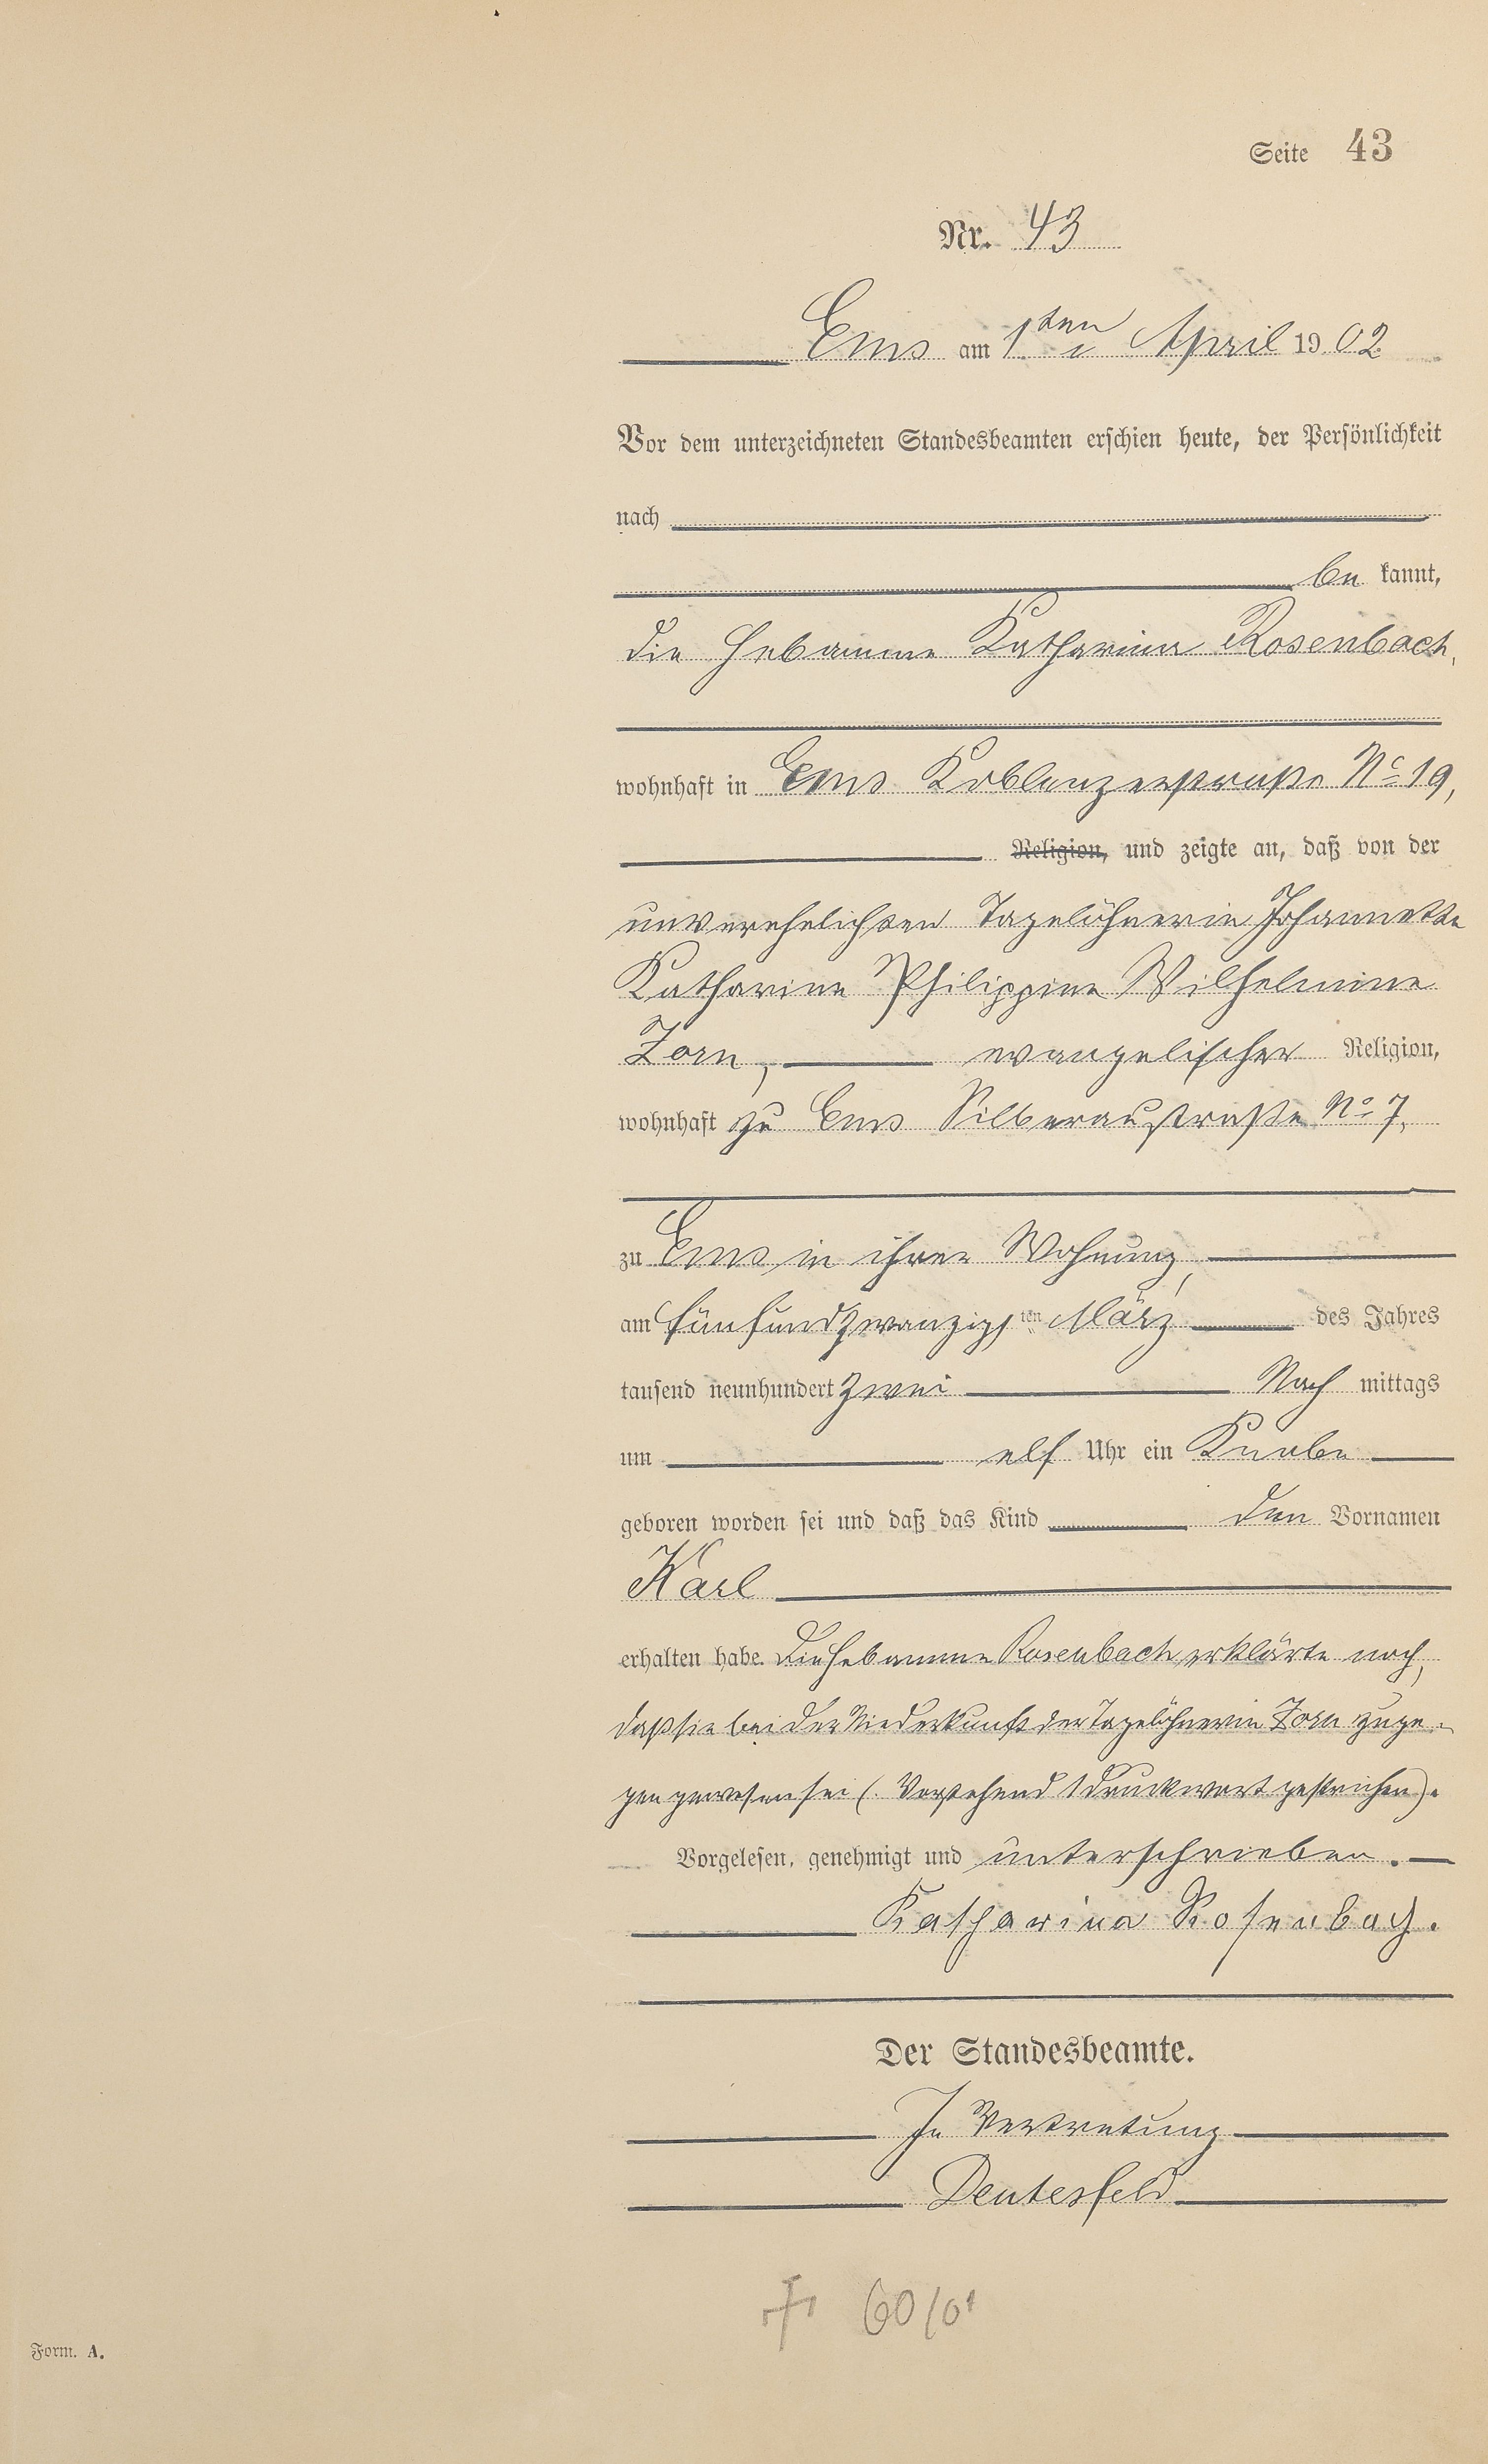 Seite 43
Nr. 43
Ems am 1ten April 1902
Vor dem unterzeichneten Standesbeamten erschien heute, der Persönlichkeit
nach
be kannt,
die Hebamme Katharina Rosenbach,
wohnhaft in Ems Koblenzerstraße No 19,
Religion, und zeigte an, daß von der
unverehelichten Tagelöhnerin Johannette
Katharine Philippine Wilhelmine
Zorn, evangelischer Religion,
wohnhaft zu Ems Silberaustraße No 7,
zu Ems in ihrer Wohnung,
am fünfundzwanzigsten März des Jahres
tausend neunhundert zwei Nach mittags
um elf Uhr ein Knabe
geboren worden sei und daß das Kind den Vornamen
Karl
erhalten habe. Die Hebamme Rosenbach erklärte noch,
daß sie bei der Niederkunft der Tagelöhnerin Zorn zuge-
gen gewesen sei (. Vorstehend 1 Druckwort gestrichen).
Vorgelesen, genehmigt und unterschrieben.
Katharina Rosenbach.
Der Standesbeamte.
In Vertretung
Deutesfeld
Form. A.